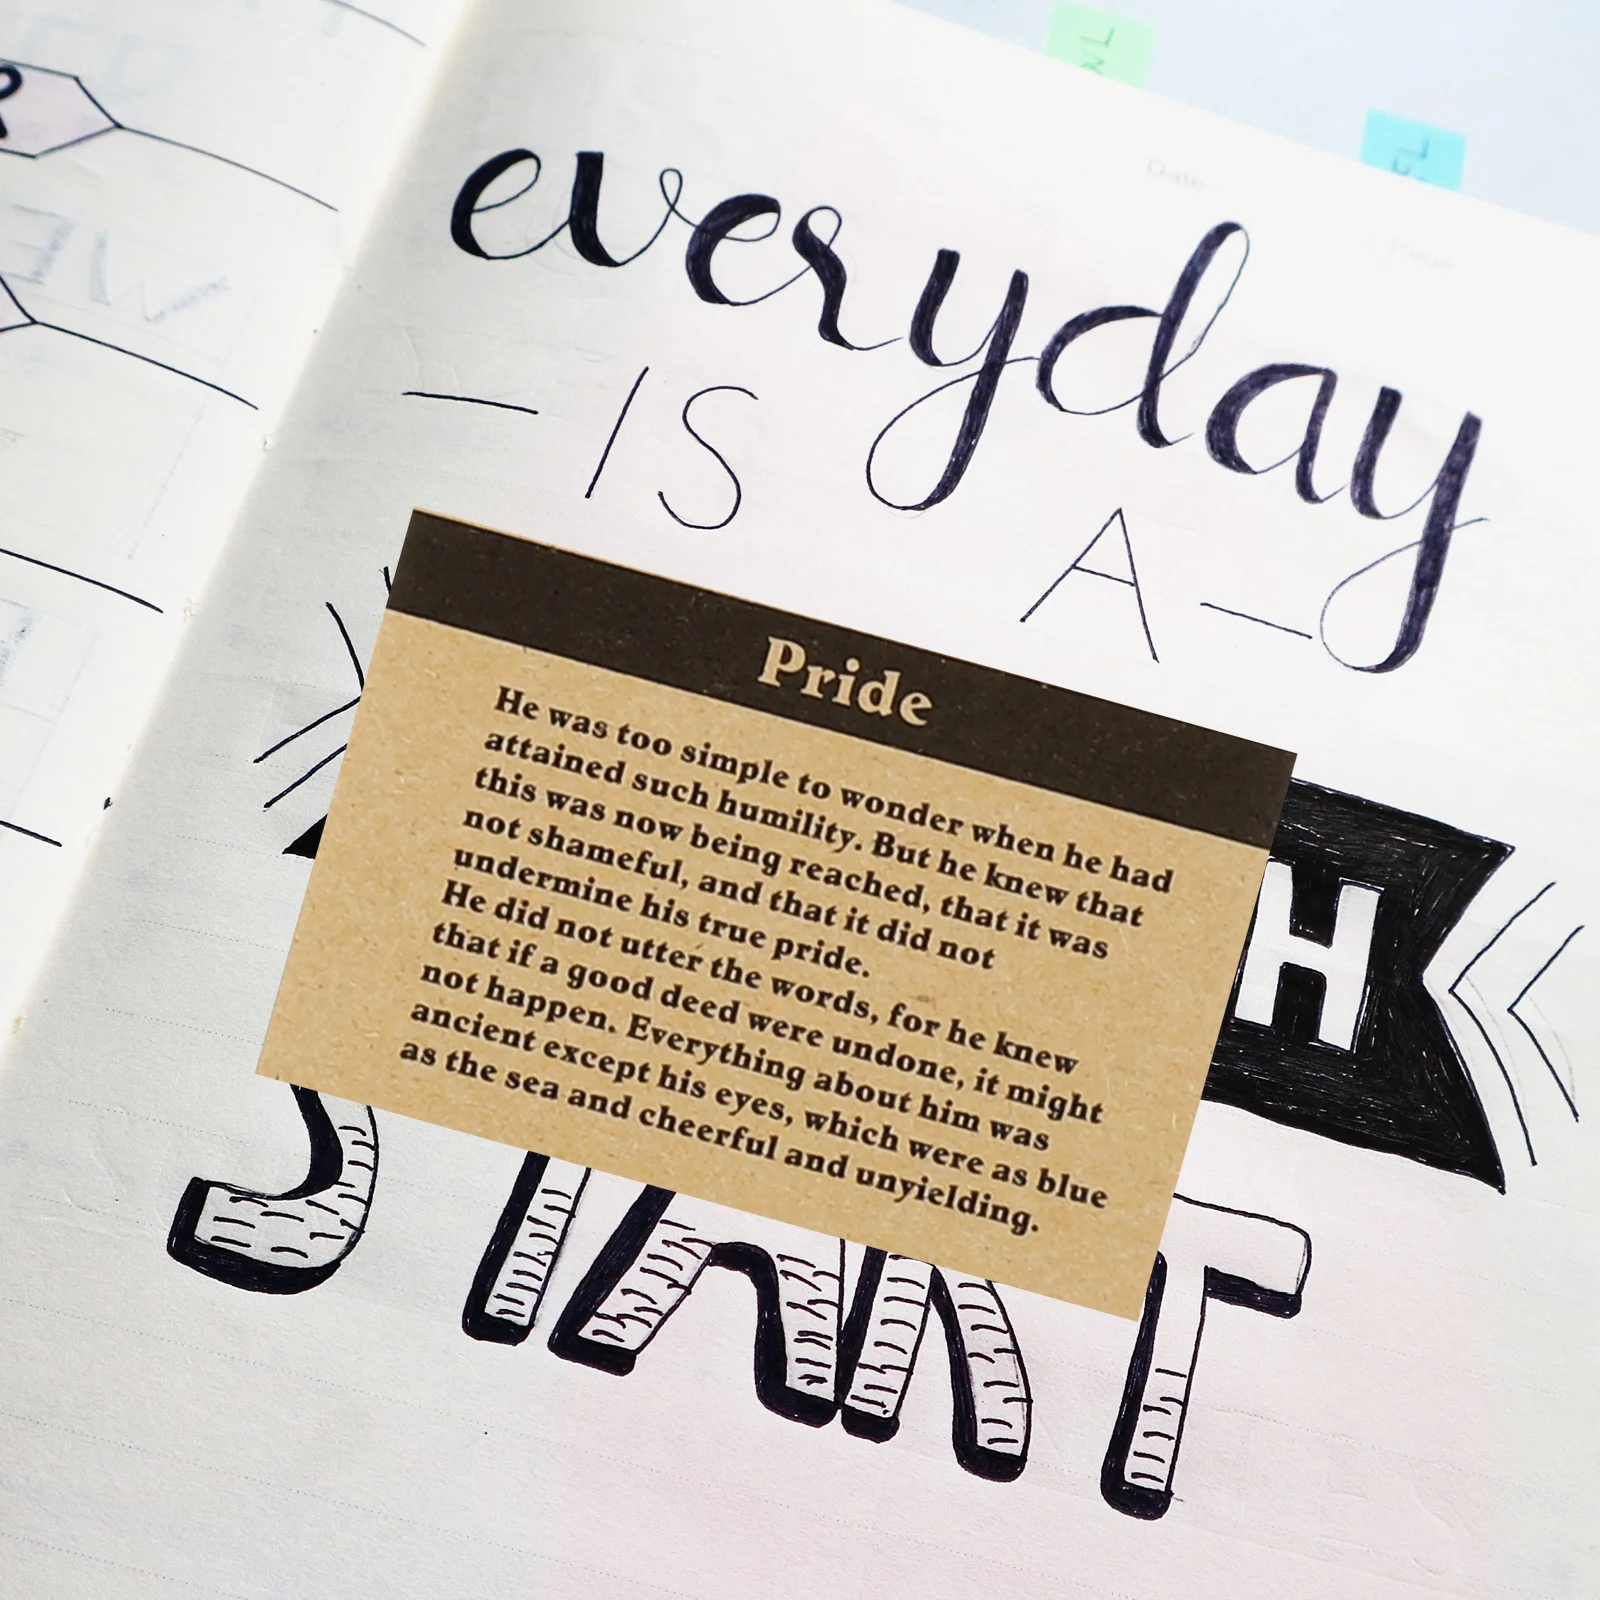 everyday
IS A
Pride
He was too simple to wonder when he had
attained such humility. But he knew that
this was now being reached, that it was
not shameful, and that it did not
undermine his true pride.
He did not utter the words, for he knew
that if a good deed were undone, it might
not happen. Everything about him was
ancient except his eyes, which were as blue
as the sea and cheerful and unyielding.
H
START
Date